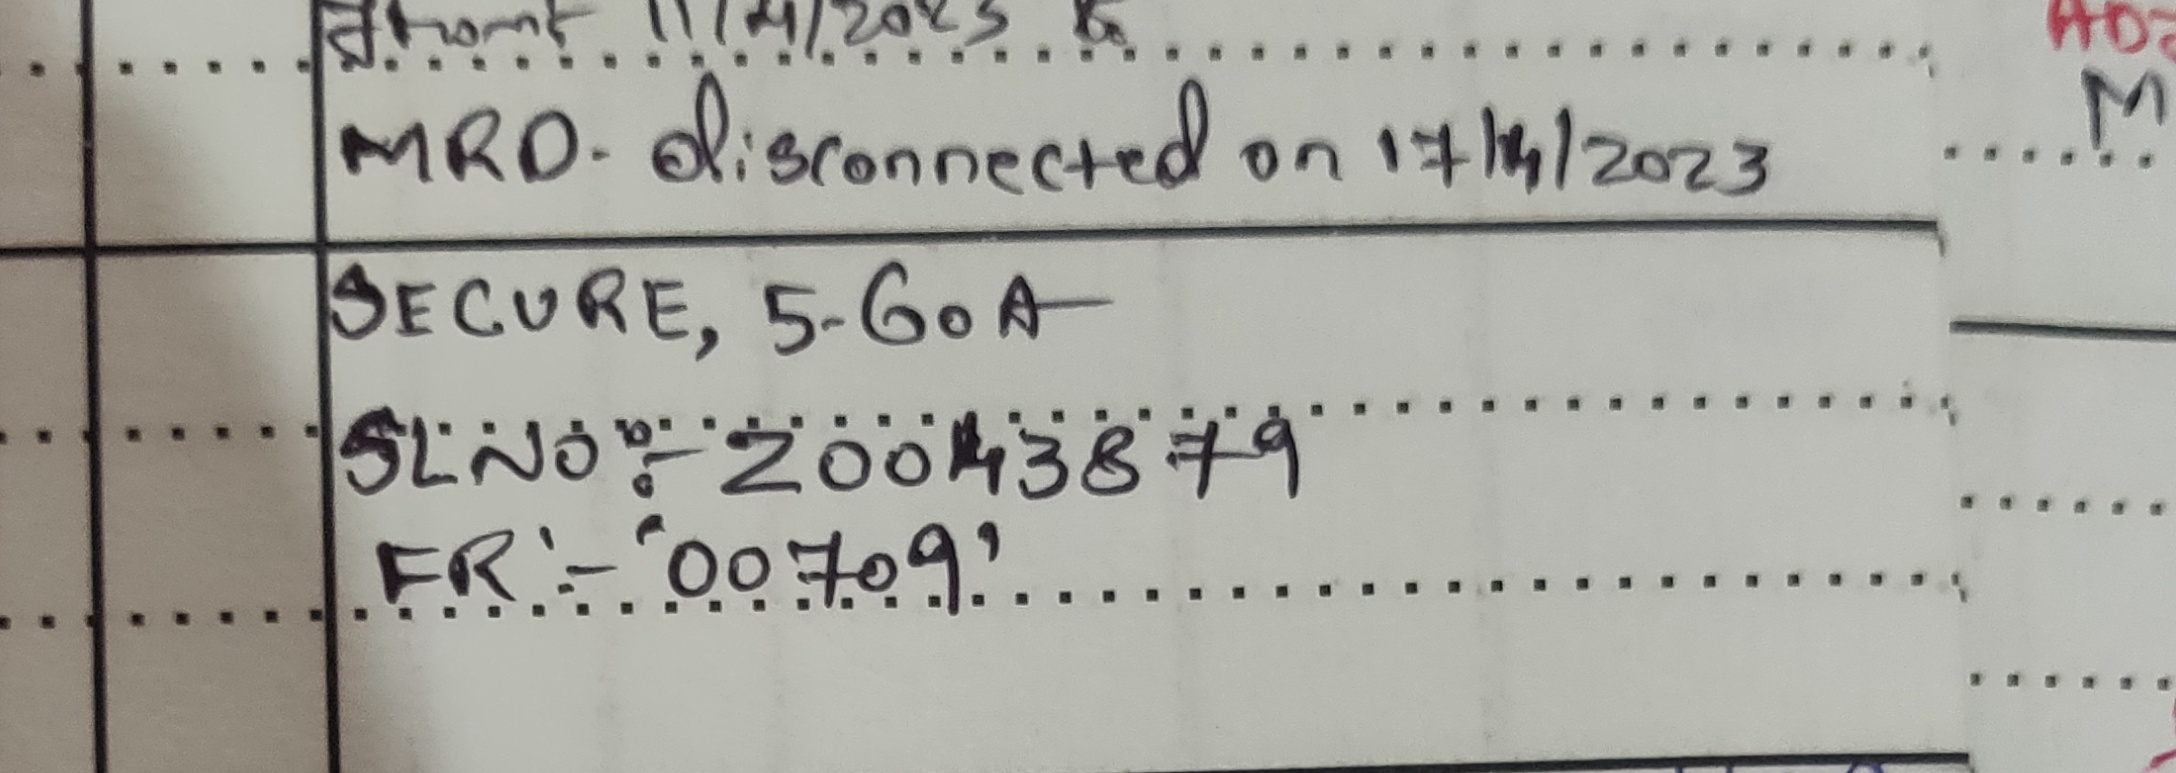 from 11/4/2023 to
MRD- disconnected on 17/4/2023
SECURE, 5-60A
SL NO:- 20043879
FR:- '00709'